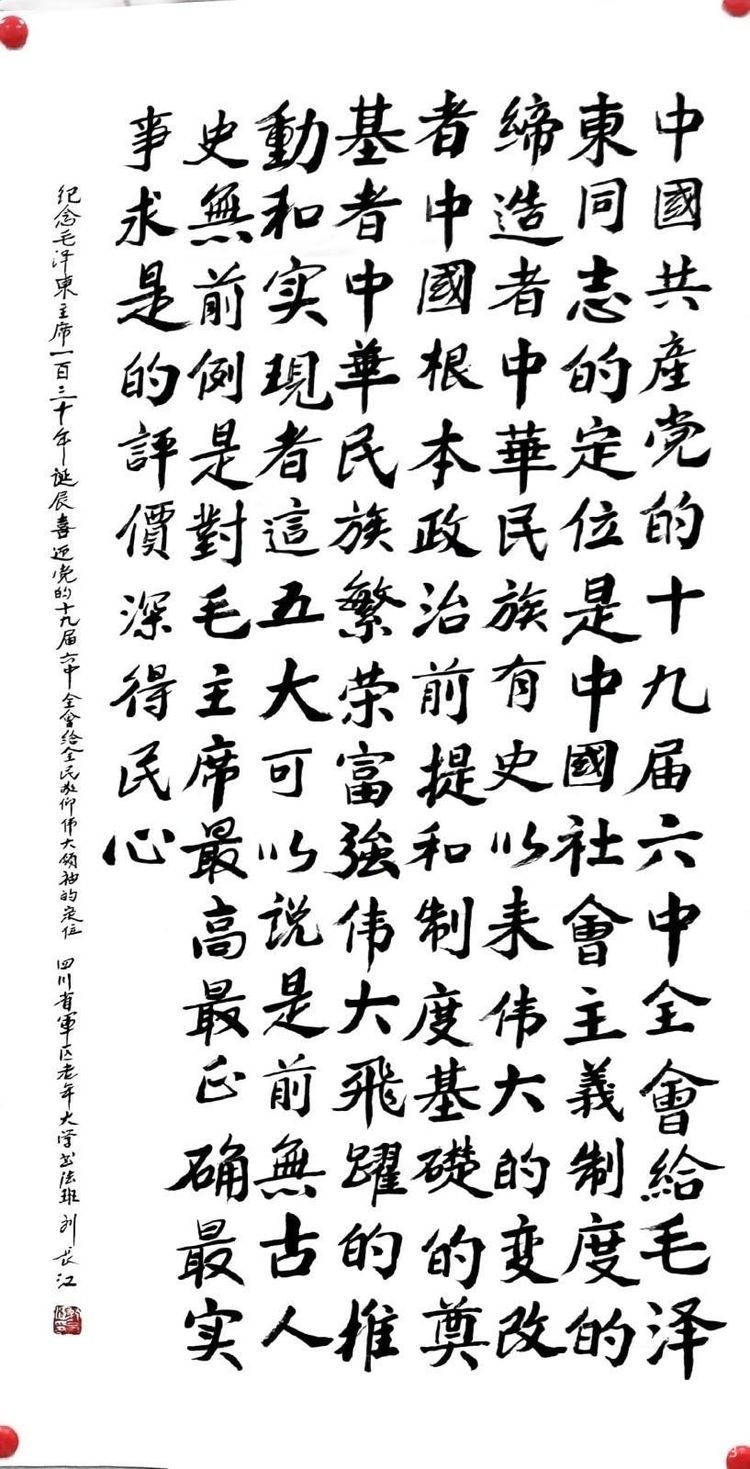 中國共產党的十九届六中全會給毛泽
東同志的定位是中國社會主義制度的
締造者中華民族有史以来伟大的变改
者中國根本政治前提和制度基礎的奠
基者中華民族繁荣富強伟大飛躍的推
動和实現者這五大可以说是前無古人
史無前例是對毛主席最高最正确最实
事求是的評價深得民心
纪念毛泽東主席一百三十年诞辰喜迎党的十九届六中全會给全民敬仰伟大领袖的定位 四川省軍区老年大学书法班 刘長江